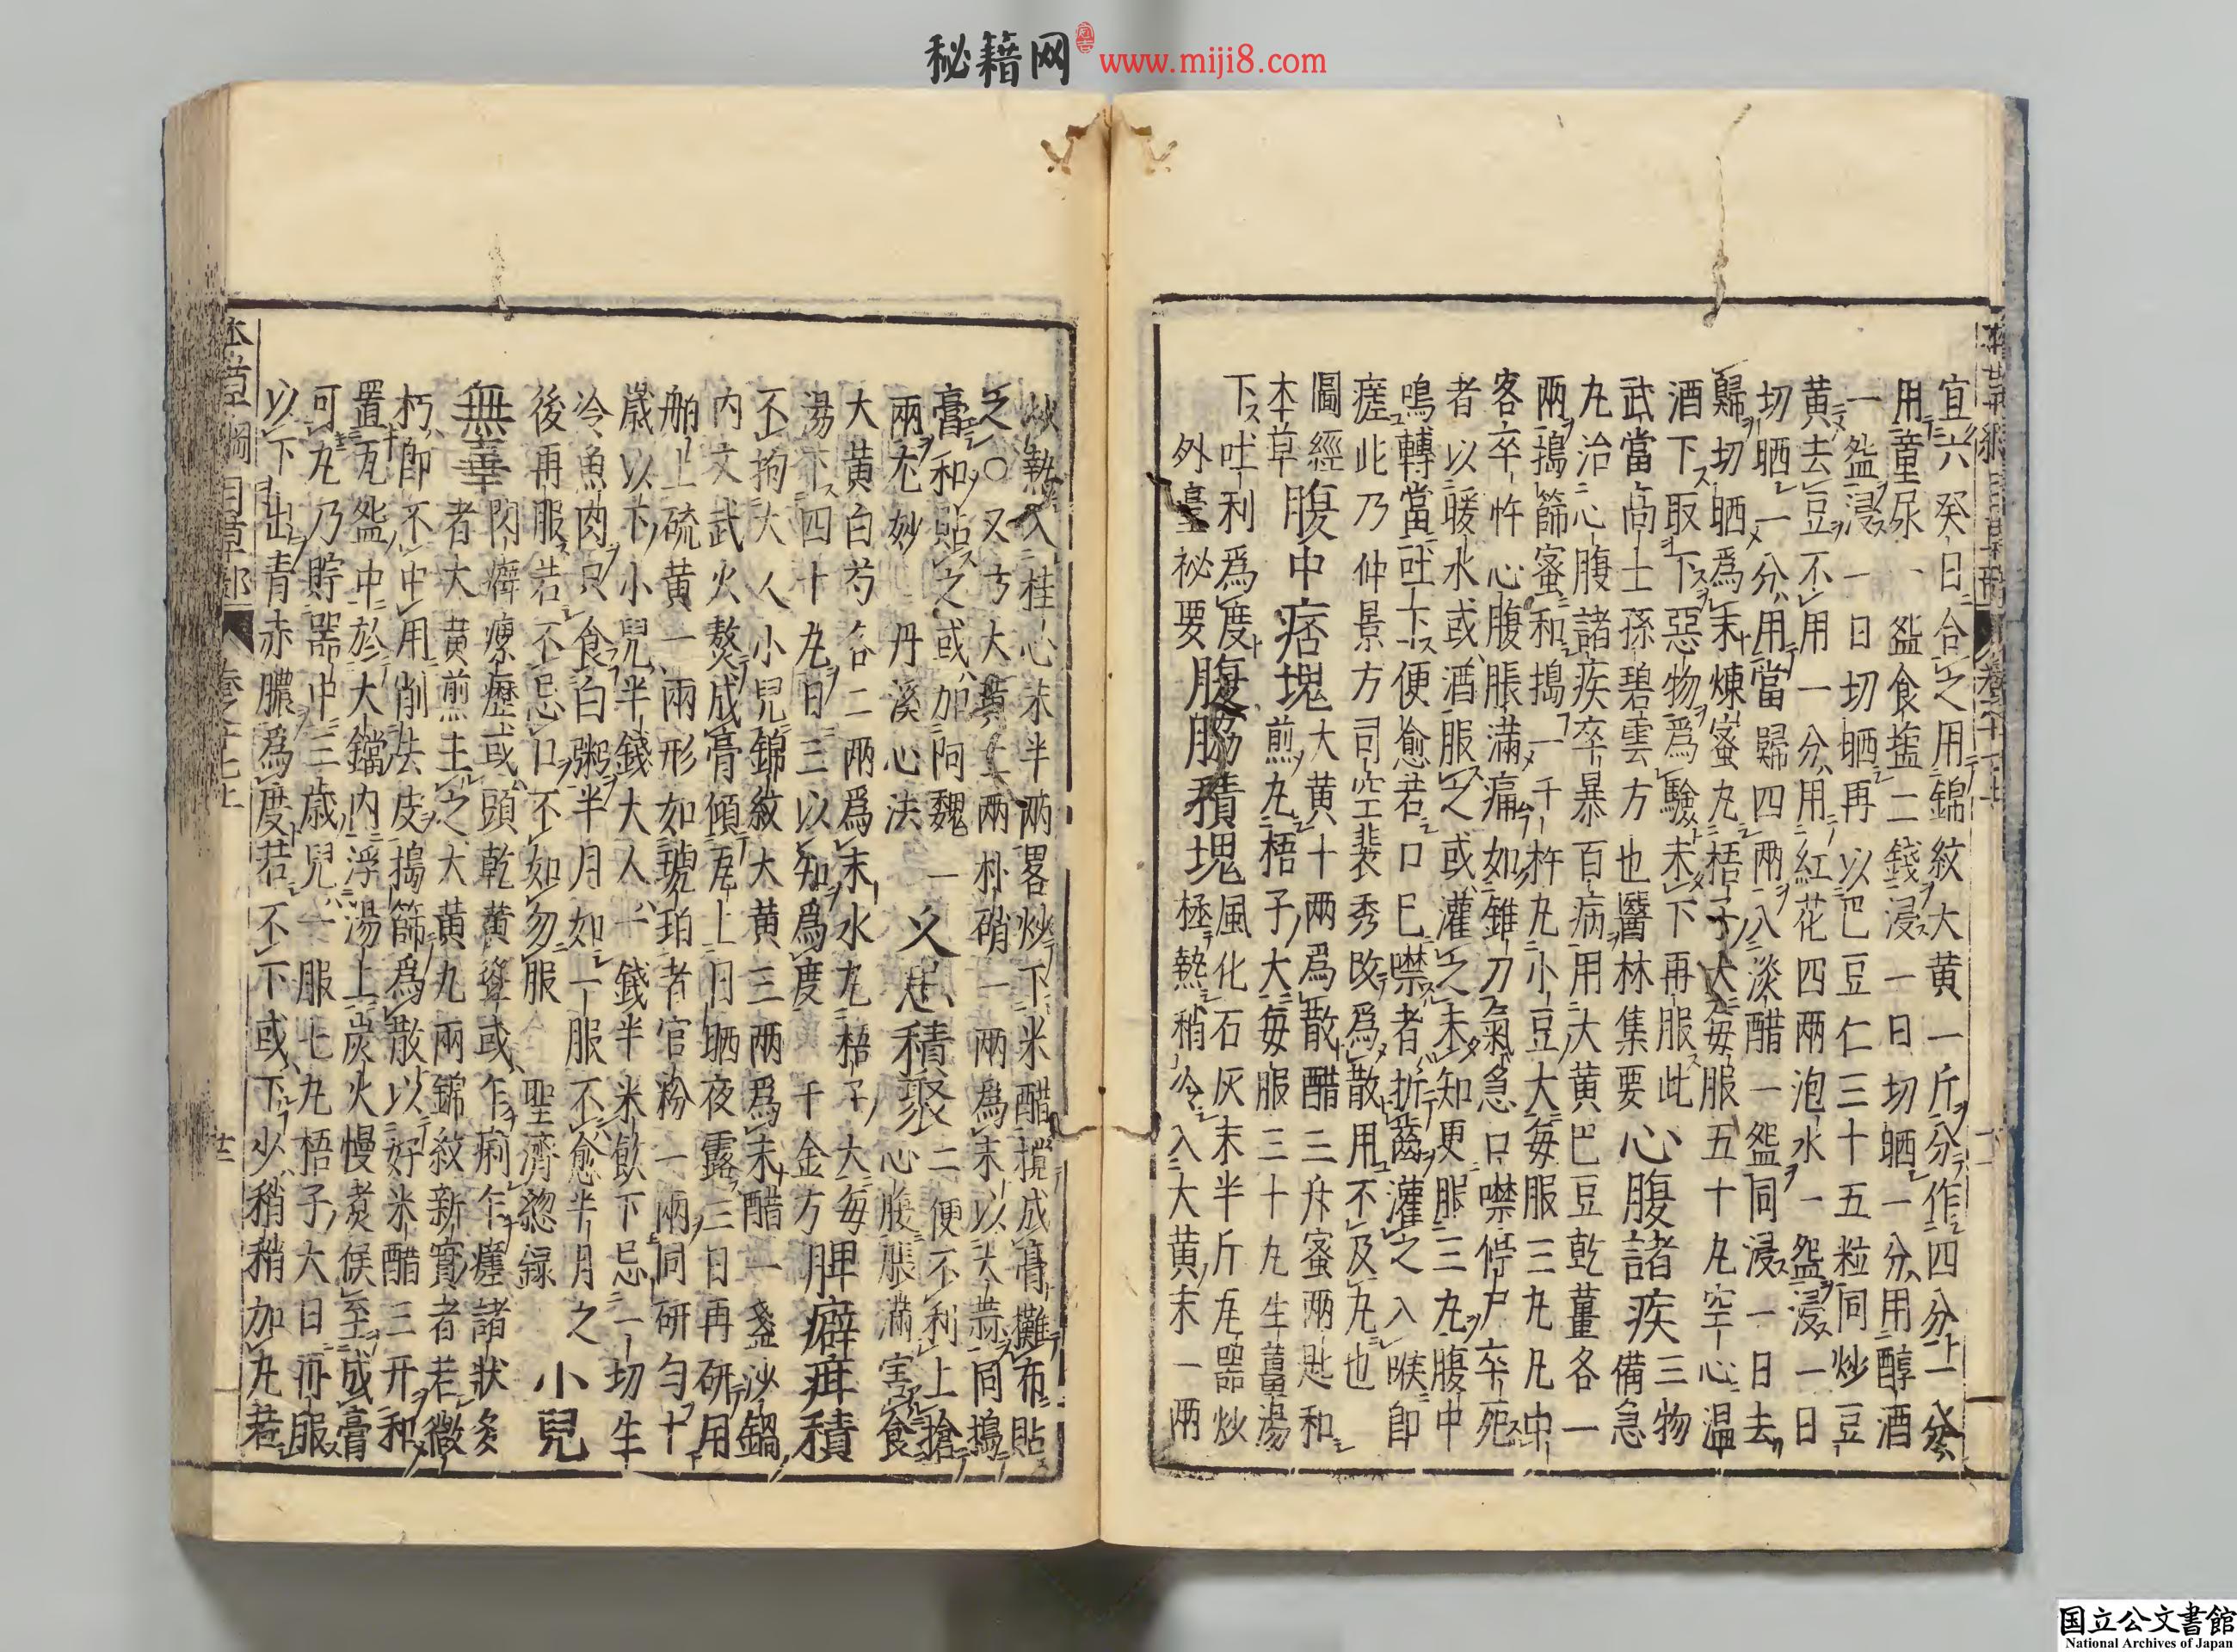 秘籍网 www.miji8.com
宜六癸日合之用錦紋大黃一斤分作四分一分
用童尿一盌食塩二錢浸一日切晒一分用醇酒
一盌浸一日切晒再以巴豆仁三十五粒同炒豆
黃去豆不用一分用紅花四兩泡水一盌浸一日
切晒一分用當歸四兩入淡醋一盌同浸一日去
歸切晒爲末煉蜜丸梧子大每服五十丸空心温
酒下取下惡物爲驗未下再服此
武當高士孫碧雲方也醫林集要心腹諸疾三物備急
丸治心腹諸疾卒暴百病用大黃巴豆乾薑各一
兩搗篩蜜和搗一千杵丸小豆大每服三丸凡中
客卒忤心腹脹滿痛如錐刀氣急口噤停尸卒死
者以暖水或酒服之或灌之未知更服三丸腹中
鳴轉當吐下便愈若口已噤者折齒灌之入喉即
瘥此乃仲景方司空裴秀改爲散用不及丸也
圖經
本草腹中痞塊大黃十兩爲散醋三升蜜兩匙和
煎丸梧子大每服三十丸生薑湯
下吐利爲度
外臺祕要腹脇積塊風化石灰末半斤瓦器炒
極熱稍冷入大黃末一兩
炒熱入桂心末半兩畧炒下米醋攪成膏攤布貼
之○又方大黃二兩朴硝一兩爲末以大蒜同搗
膏和貼之或加阿魏一
兩尤妙丹溪心法久患積聚二便不利上搶
心腹脹滿害食
大黃白芍各二兩爲末水丸梧子大每
湯下四十丸日三以知爲度千金方脾癖疳積
不拘大人小兒錦紋大黃三兩爲末醋一盞沙鍋
内文武火熬成膏傾瓦上日晒夜露三日再研用
舶上硫黃一兩形如琥珀者官粉一兩同研勻十
歲以下小兒半錢大人一錢半米飲下忌一切生
冷魚肉只食白粥半月如一服不愈半月之
後再服若不忌口不如勿服聖濟總錄小兒
無辜閃癖瘰癧或頭乾黃聳或乍痢乍瘥諸狀多
者大黃煎主之大黃九兩錦紋新實者若微
朽即不中用削去皮搗篩爲散以好米醋三升和
置瓦盌中於大鐺内浮湯上炭火慢煮候至成膏
可丸乃貯器中三歲兒一服七丸梧子大日再服
以下出青赤膿爲度若不下或下少稍稍加丸若
本草綱目草部 卷之十七上 廿二
国立公文書館
National Archives of Japan